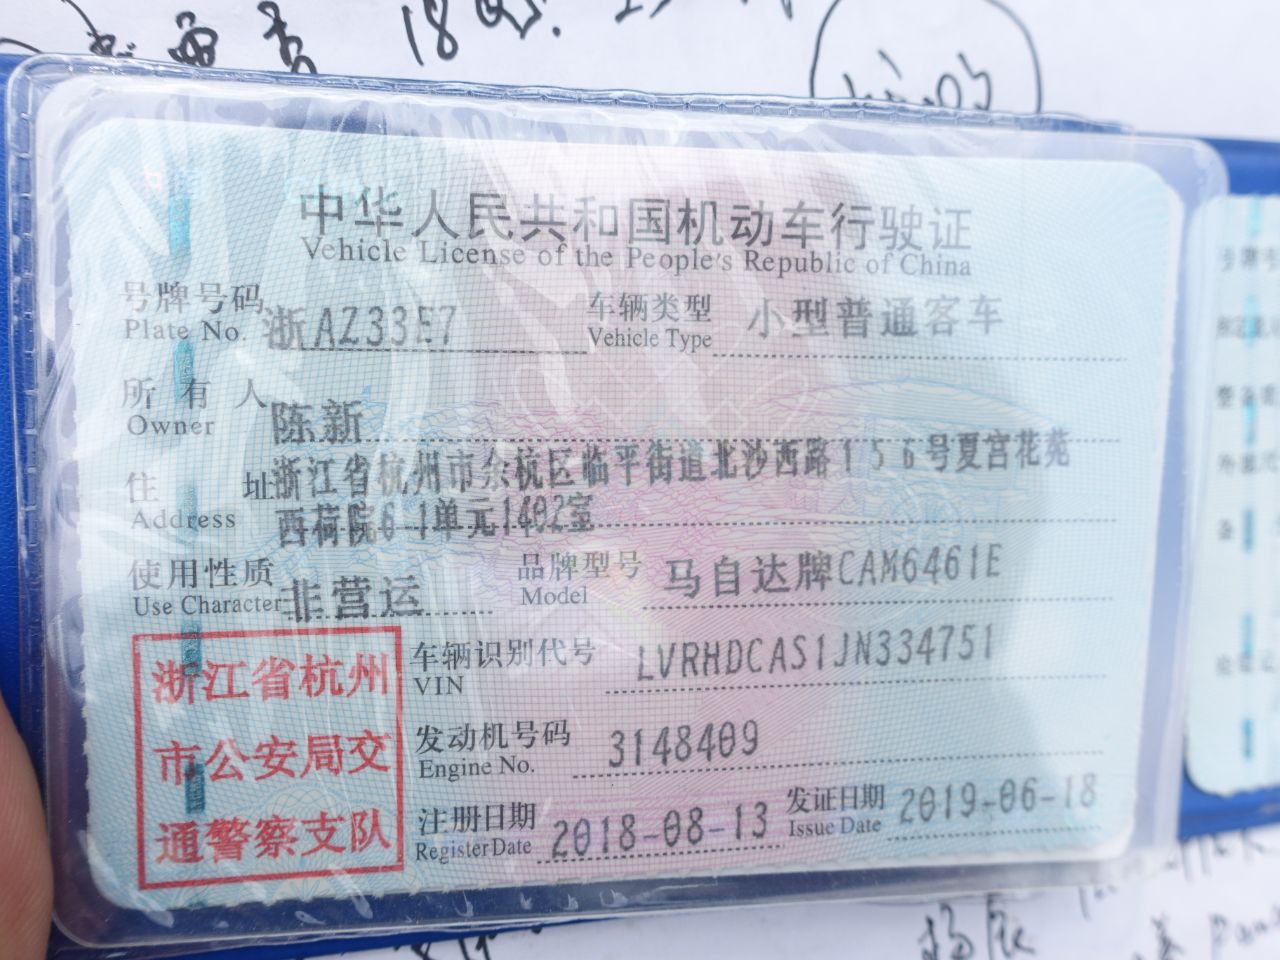 18
中华人民共和国机动车行驶证
Vehicle License of the People's Republic of China
号牌号码 浙AZ33E7 车辆类型 小型普通客车
Plate No. Vehicle Type
所有人 陈新
Owner
住址 浙江省杭州市余杭区临平街道北沙西路156号夏宫花苑
Address 西荷院6-1单元1402室
使用性质 非营运 品牌型号 马自达牌CAM6461E
Use Character Model
浙江省杭州
市公安局交
通警察支队
车辆识别代号 LVRHDCAS1JN334751
VIN
发动机号码 3148409
Engine No.
注册日期 2018-08-13 发证日期 2019-06-18
Register Date Issue Date